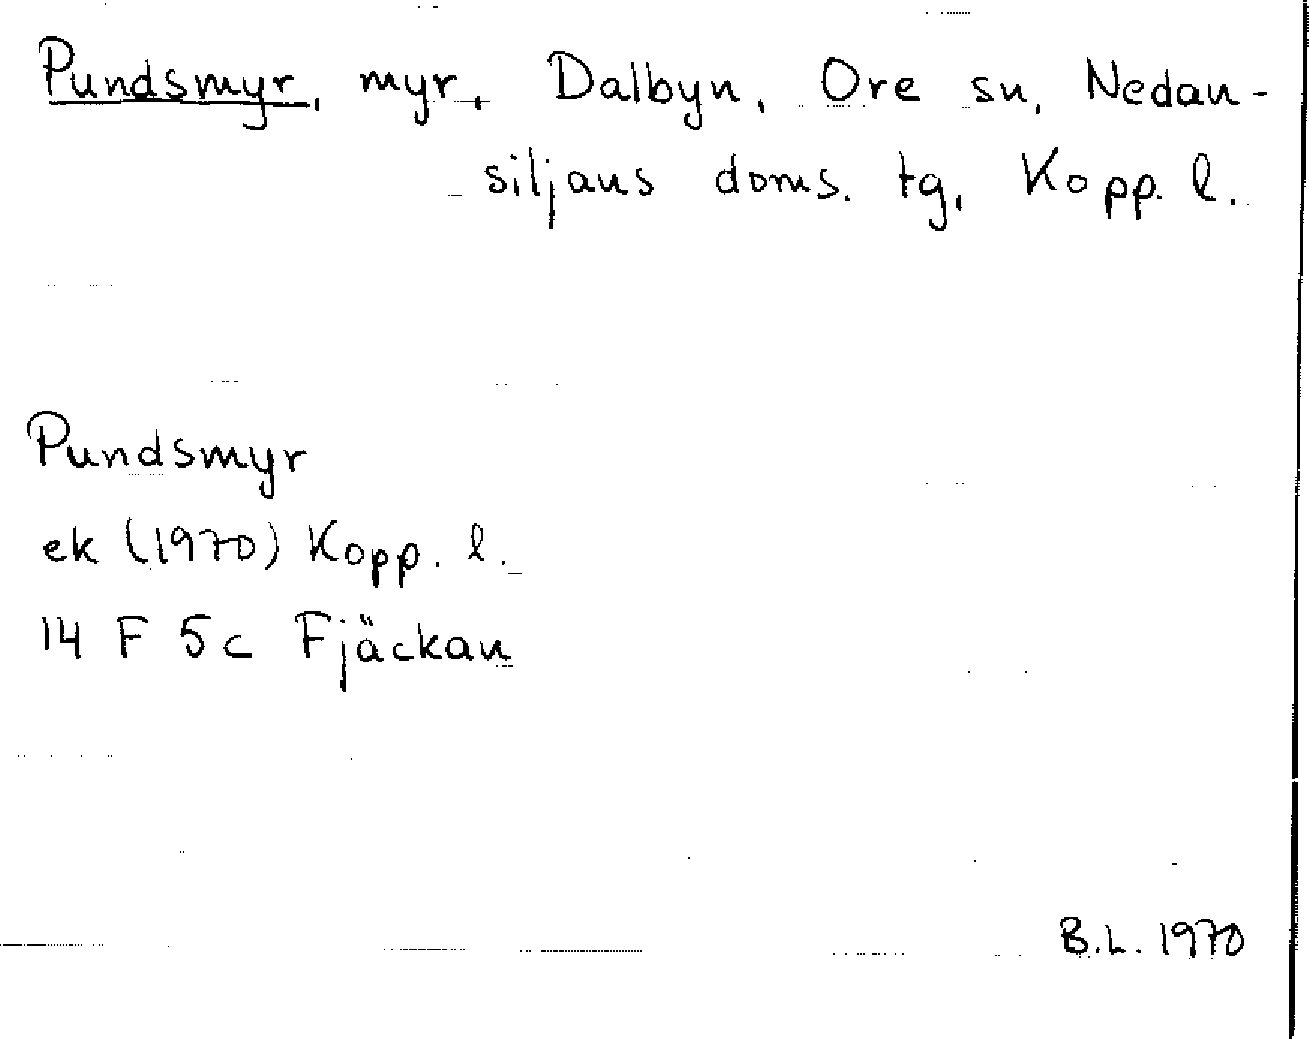 Pundsmyr, myr, Dalbyn, Ore sn, Nedan-
siljans doms. tg, Kopp. l.
Pundsmyr
ek (1970) Kopp. l.
14 F 5c Fjäckan
B.L. 1970